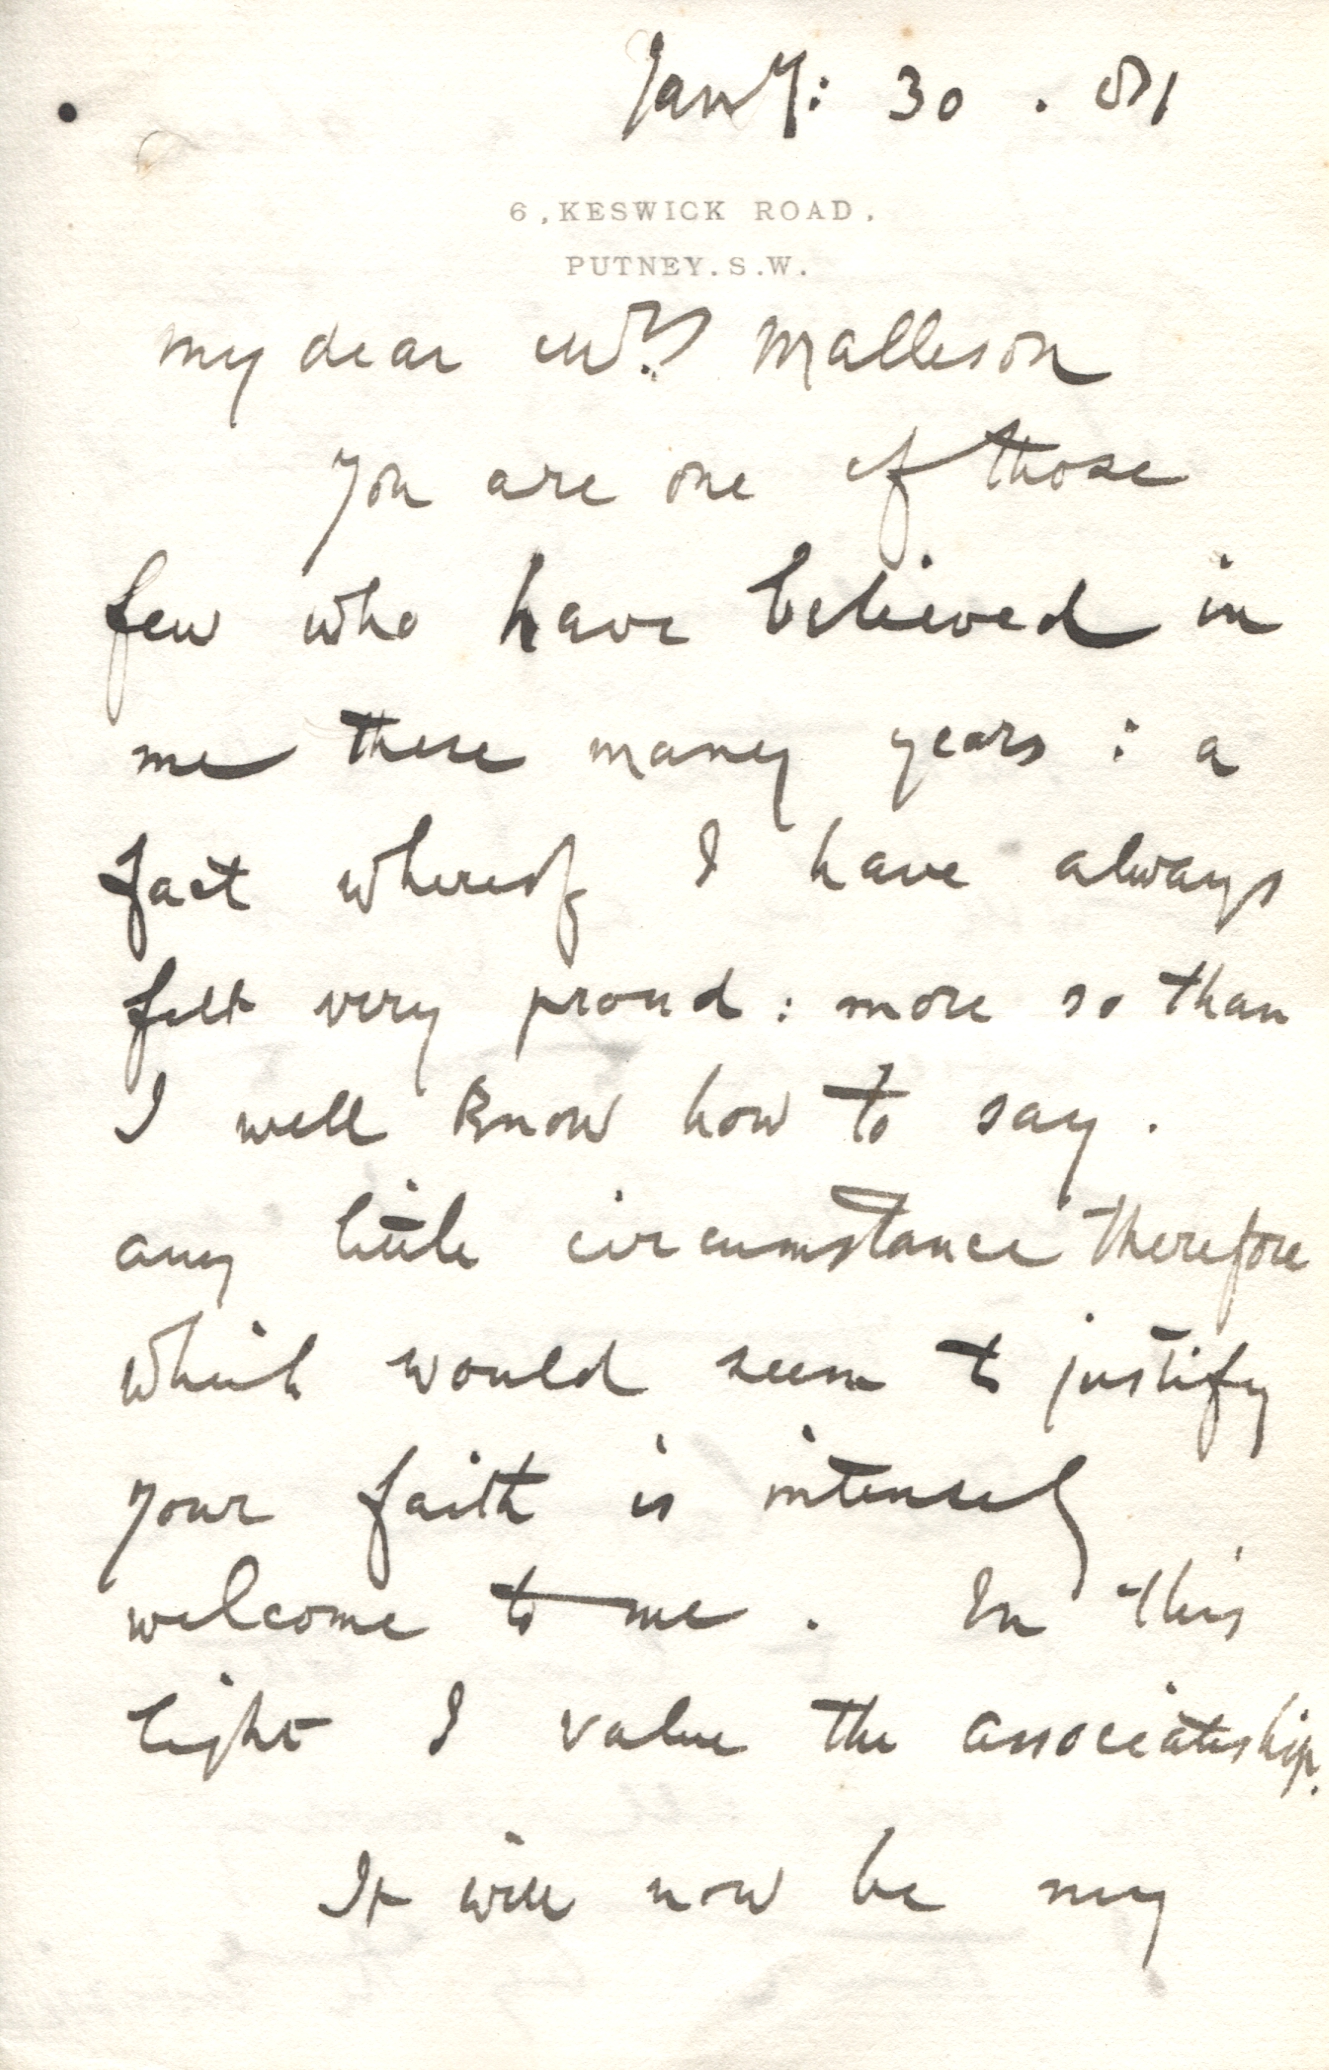 Jany: 30 . 81
6, KESWICK ROAD,
PUTNEY. S.W.
My dear Mrs. Malleson
You are one of those
few who have believed in
me these many years : a
fact whereof I have always
felt very proud : more so than
I well know how to say .
any little circumstance therefore
which would seem to justify
your faith is intensely
welcome to me . In this
light I value the associateship.
It will now be my